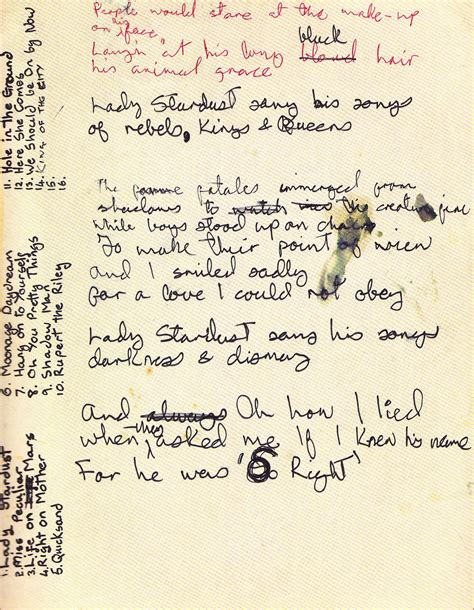 People would stare at the make-up
on his face
Laugh at his long black blond hair
his animal grace
Lady Stardust sang his songs
of rebels, Kings & Queens
The femme fatales immerged from
shadows to watch this creature fine
While boys stood up on chairs
To make their point of view
And I smiled sadly
For a love I could not obey
Lady Stardust sang his songs
darkness & dismay
And always Oh how I lied
when they asked me If I knew his name
For he was 'So Right'
1. Lady Stardust
2. Miss Peculiar
3. Life on Mars
4. Right on Mother
5. Quicksand
6. Moonage Daydream
7. Hang on to Yourself
8. Oh You Pretty Things
9. Shadow Man
10. Rupert the Riley
11. Hole in the Ground
12. Here She Comes
13. We Should be On by Now
14. King of the City
15.
16.